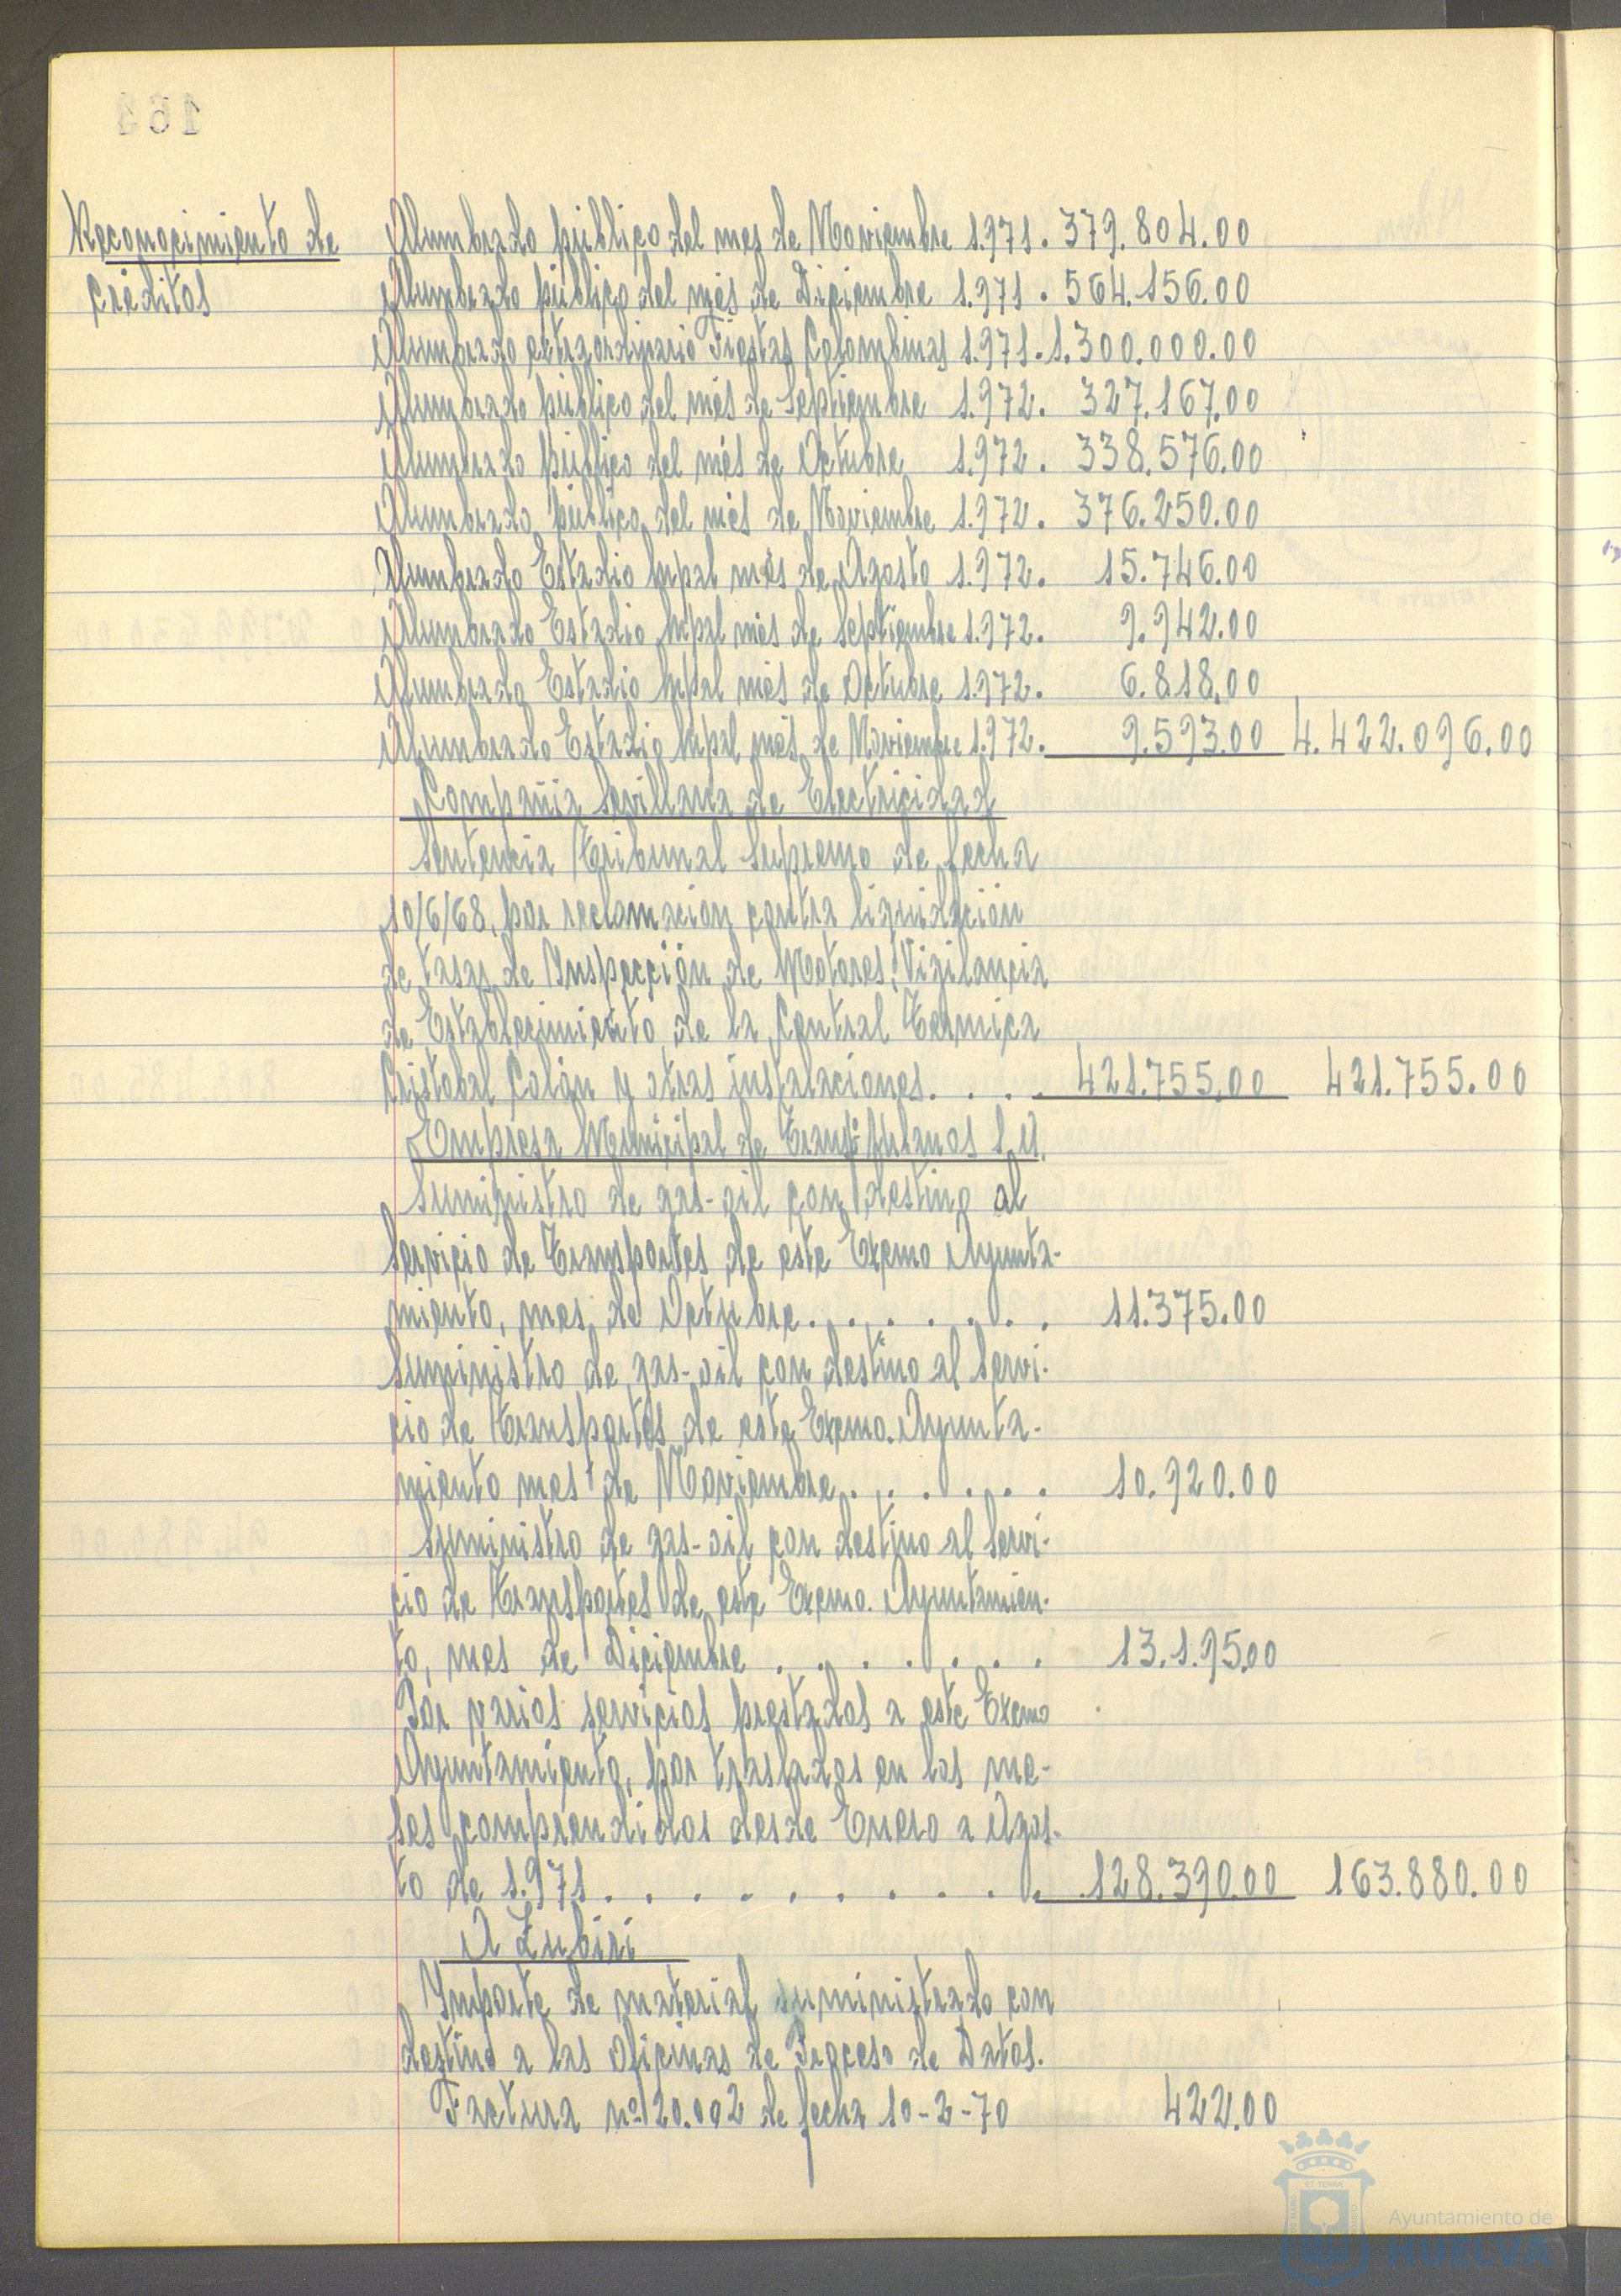 Reconocimiento de
créditos
Alumbrado público del mes de Noviembre 1.971. 379.804.00
Alumbrado público del més de Diciembre 1.971. 564.156.00
Alumbrado extraordinario Fiestas Colombinas 1.971. 1.300.000.00
Alumbrado público del més de Septiembre 1.972. 327.167.00
Alumbrado público del més de Octubre 1.972. 338.576.00
Alumbrado público del més de Noviembre 1.972. 376.250.00
Alumbrado Estadio Mpal més de Agosto 1.972. 15.746.00
Alumbrado Estadio Mpal més de Septiembre 1.972. 9.942.00
Alumbrado Estadio Mpal més de Octubre 1.972. 6.818.00
Alumbrado Estadio Mpal més de Noviembre 1.972. 9.593.00 4.422.096.00
Compañia Sevillana de Electricidad
Sentencia Tribunal Supremo de fecha
10/6/68, por reclamación contra liquidación
de tasas de Inspección de Motores, Vigilancia
de Establecimiento de la Central Termica
Cristobal Colón y otras instalaciones. . . . 421.755.00 421.755.00
Empresa Municipal de Transp. Urbanos S.A.
Suministro de gas-oil con destino al
Servicio de Transportes de este Excmo Ayunta-
miento, mes de Octubre. . . . . . . 11.375.00
Suministro de gas-oil con destino al Servi-
cio de Transportes de este Excmo. Ayunta-
miento mes de Noviembre. . . . . . 10.920.00
Suministro de gas-oil con destino al Servi-
cio de Transportes de este Excmo. Ayuntamien-
to, mes de Diciembre . . . . . . . 13.195.00
Por varios servicios prestados a este Excmo
Ayuntamiento, por traslados en los me-
ses comprendidos desde Enero a Agos-
to de 1.971. . . . . . . . . . . 128.390.00 163.880.00
A Zubiri
Importe de material suministrado con
destino a las oficinas de Proceso de Datos.
Factura nº 20.092 de fecha 10-2-70 422.00
Ayuntamiento de
HUELVA